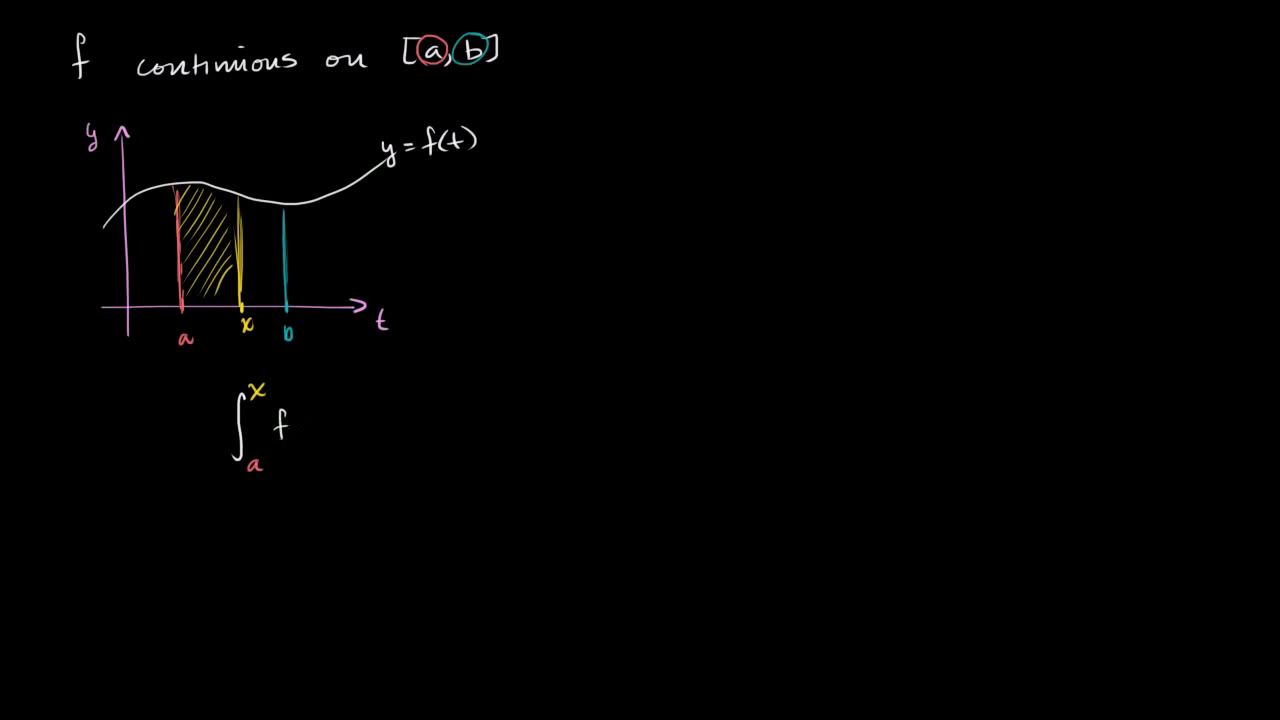 f continuous on [a,b]
y
y = f(t)
a
x
b
t
∫ₐˣ f